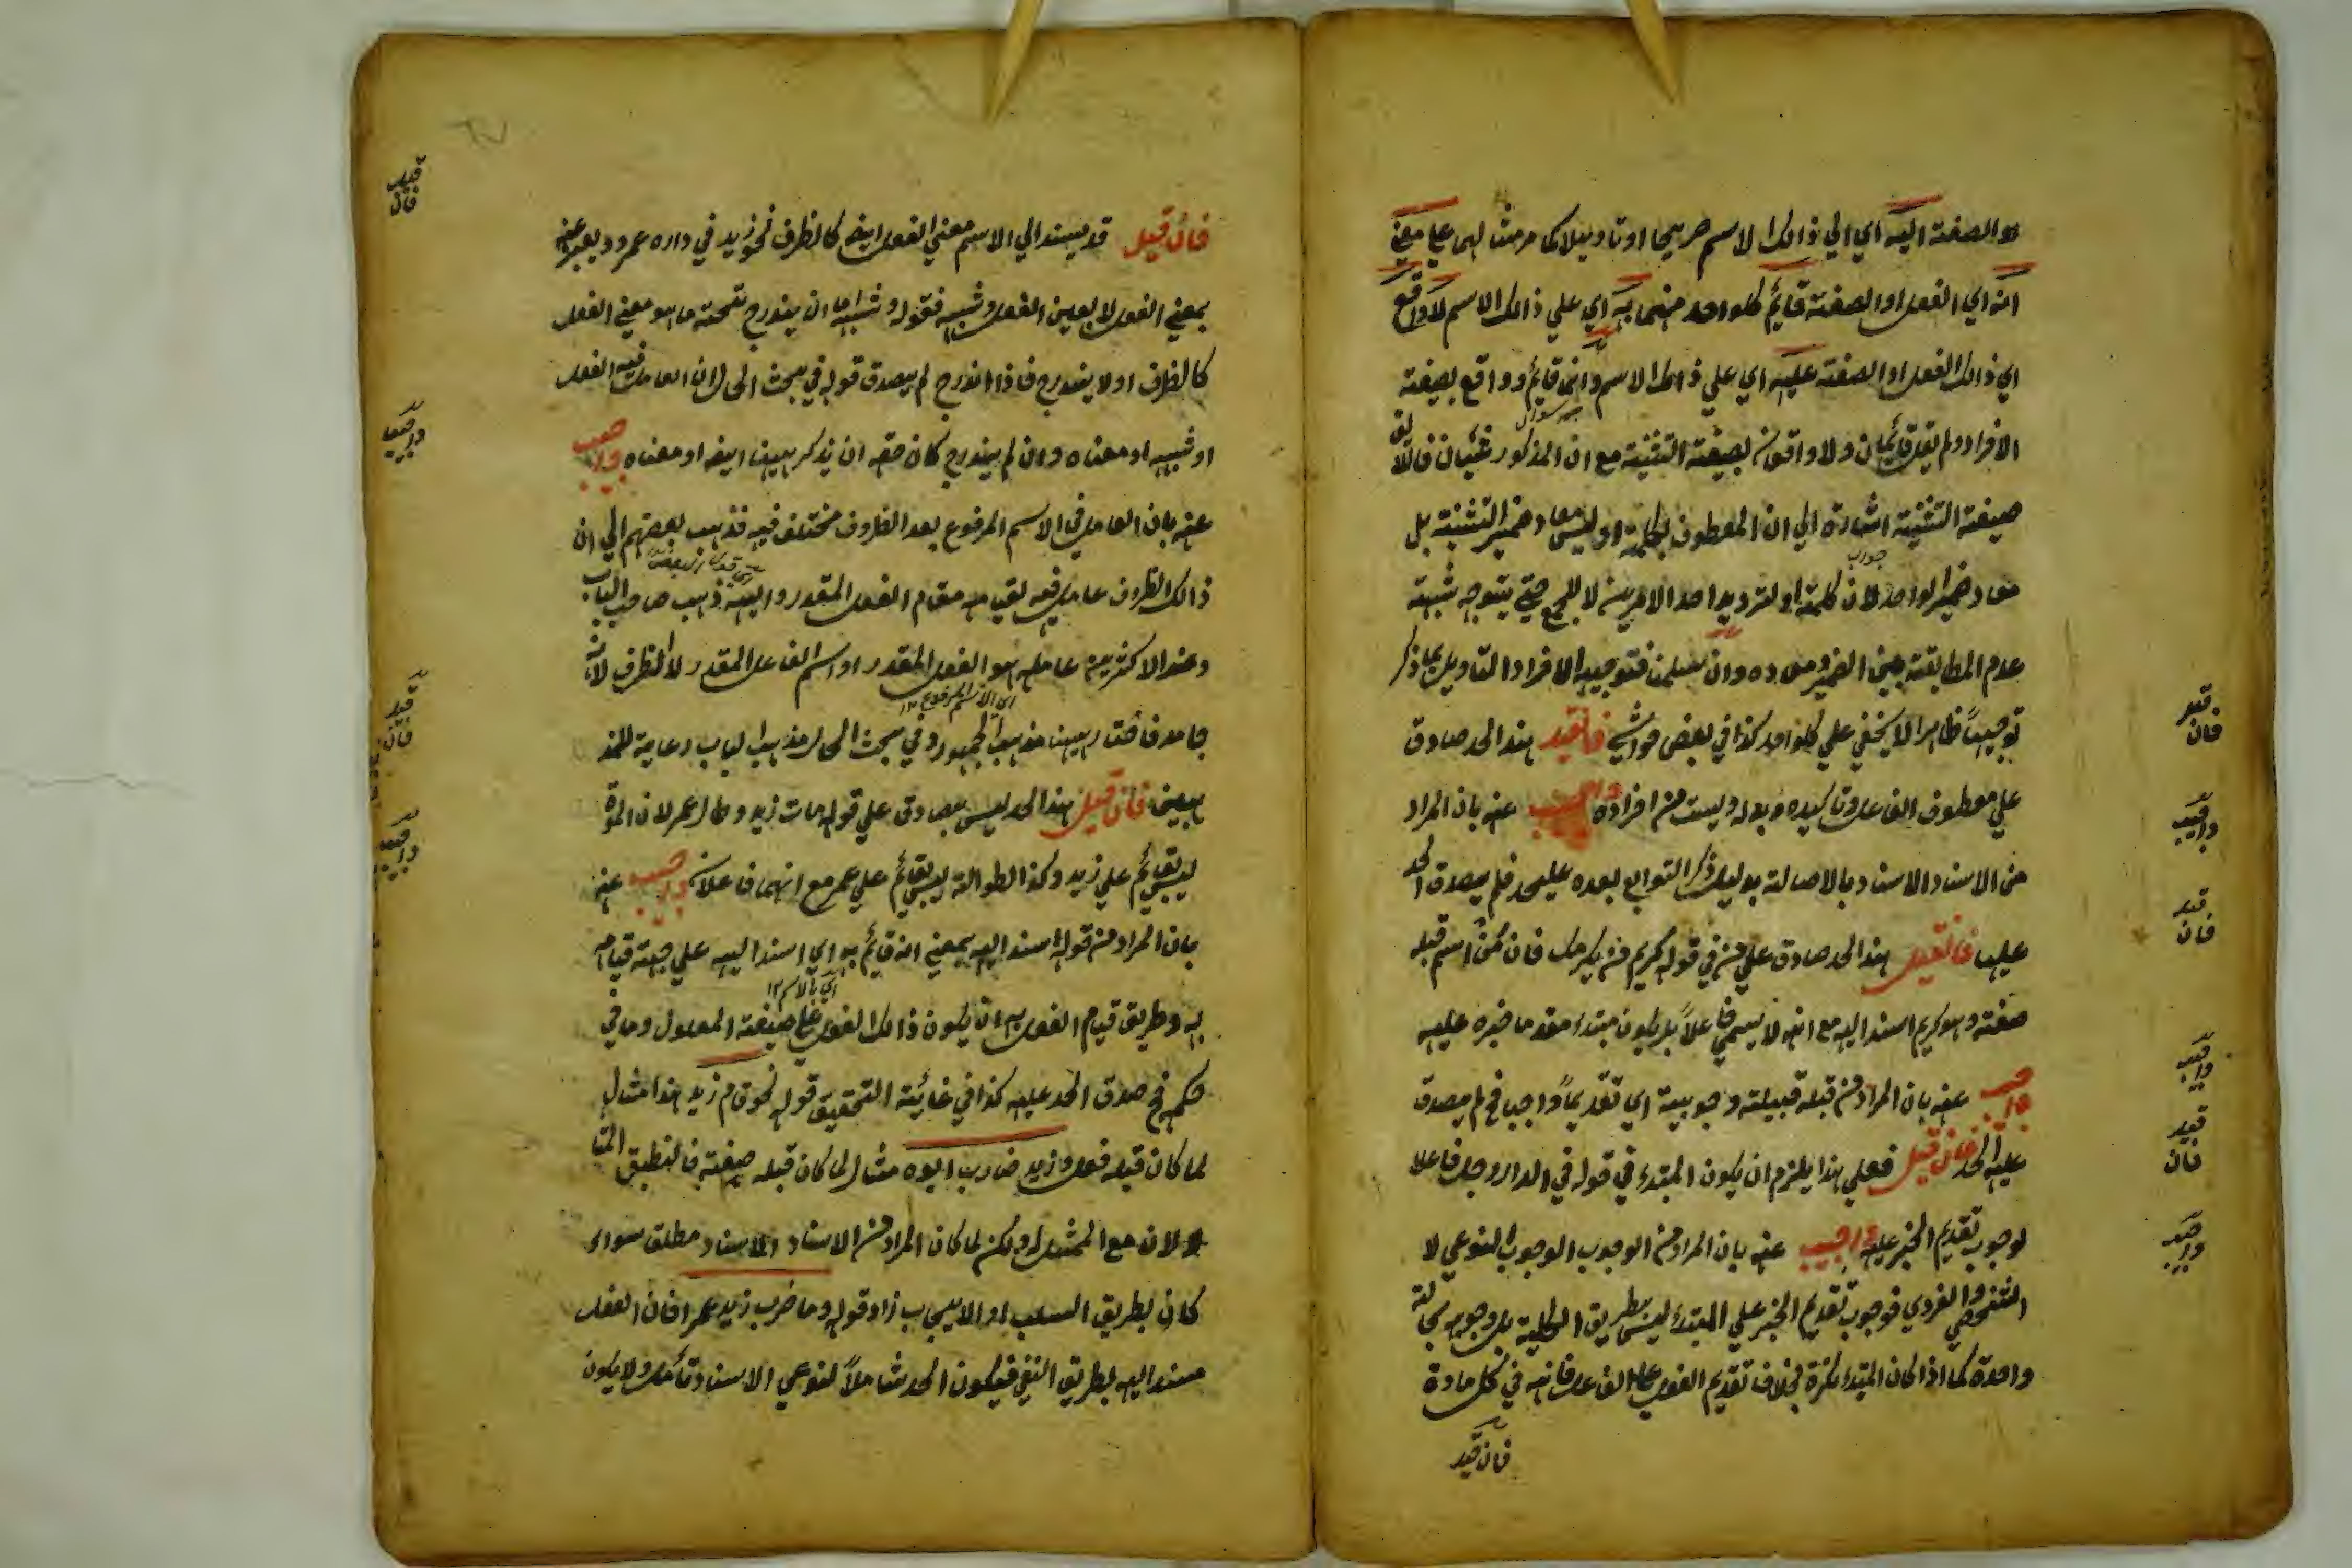 والصفة اليه اي الي ذالك الاسم صريحا او تاويلا كما مر مثالهما علي معني
انه اي الفعل او الصفة قائم كلواحد منهما به اي علي ذالك الاسم لا واقع
اي ذالك الفعل او الصفة عليه اي علي ذالك الاسم وانما قائم وواقع بصيغة
الافراد ولم يقل قائمان ولا واقعان بصيغة التثنية مع ان المذكور شيئان فاللائق
صيغة التثنية اشارة الي ان المعطوف بكلمة او ليس معاد ضمير التثنية بل
معاد ضمير الواحد لان كلمة او لترديد احد الامرين لا للجمع حتي يتوجه شبهة
عدم المطابقة بين الضمير ومعاده وان سلمنا فتوجيه الافراد التاويل بما ذكر
توجيها ظاهرا لا يخفي علي كلواحد كذا في بعض حواشيه فانقيل هذا الحد صادق
علي معطوف الفاعل وتاكيده وبدله وليست من افراده واجيب عنه بان المراد
من الاسناد الاسناد بالاصالة بدليل ذكر التوابع بعده عليحد فلم يصدق الحد
عليها فانقيل هذا الحد صادق علي من في قوله كريم من يكرمك فان من اسم قبله
صفة وهو كريم اسند اليه مع انه لا يسمي فاعلا بل يكون مبتدء مقدما خبره عليه
واجيب عنه بان المراد من قبله قبيلته وجوبية اي تقديما واجبا فح لم يصدق
عليه الحد فان قيل فعلي هذا يلزم ان يكون المبتدء في قوله في الدار رجل فاعلا
لوجوب تقديم الخبر عليه واجيب عنه بان المراد من الوجوب الوجوب النوعي لا
الشخصي والفردي فوجوب تقديم الخبر علي المبتدء ليس بطريق الكلية بل وجوبه بحالة
واحدة كما اذا كان المبتدء نكرة بخلاف تقديم الفعل علي الفاعل فانه في كل مادة
فان قيل
فان قيل قد يسند الي الاسم معني الفعل ايضا كالظرف نحو زيد في داره عمرو ويعبر عنه
بمعني الفعل لا بعين الفعل وشبهه فقوله وشبهه اما ان يندرج تحته ما هو معني الفعل
كالظرف او لا يندرج فاذا اندرج لم يصدق قوله في بحث الحال ان العامل فيه الفعل
او شبهه او معناه وان لم يندرج كان حقه ان يذكر ههنا ايضا او معناه واجيب
عنه بان العامل في الاسم المرفوع بعد الظروف مختلف فيه فذهب بعضهم الي ان
ذالك الظرف عامل فيه لقيامه مقام الفعل المقدر واليه ذهب صاحب اللباب
وعند الاكثرين عامله هو الفعل المقدر او اسم الفاعل المقدر لا الظرف لانه
اي الاسم المرفوع ١٢
جامد فاختار ههنا مذهب الجمهور وفي بحث الحال مذهب اللباب رعاية للمذ
هبين فان قيل هذا الحد ليس بصادق علي قوله مات زيد وطال عمر لان الموة
ليس بقائم علي زيد وكذا الطوالة ليس بقائم علي عمر مع انهما فاعلان واجيب عنه
بان المراد من قوله اسند اليه بمعني انه قائم به اي اسند اليه علي جهة قيامه
اي بالاسم ١٢
به وطريق قيام الفعل به ان يكون ذالك الفعل علي صيغة المعلول وما في
حكمه فح صدق الحد عليه كذا في غاية التحقيق قوله نحو قام زيد هذا مثال
لما كان قبله فعل وزيد ضارب ابوه مثال لما كان قبله صفة فانطبق المثا
لان مع الممثل له ولكن لما كان المراد من الاسناد الاسناد مطلق سواء
كان بطريق السلب او الايجاب زاد قوله وما ضرب زيد عمرا فان الفعل
مسند اليه بطريق النفي فيكون الحد شاملا لنوعي الاسناد تأمل ولا يكون